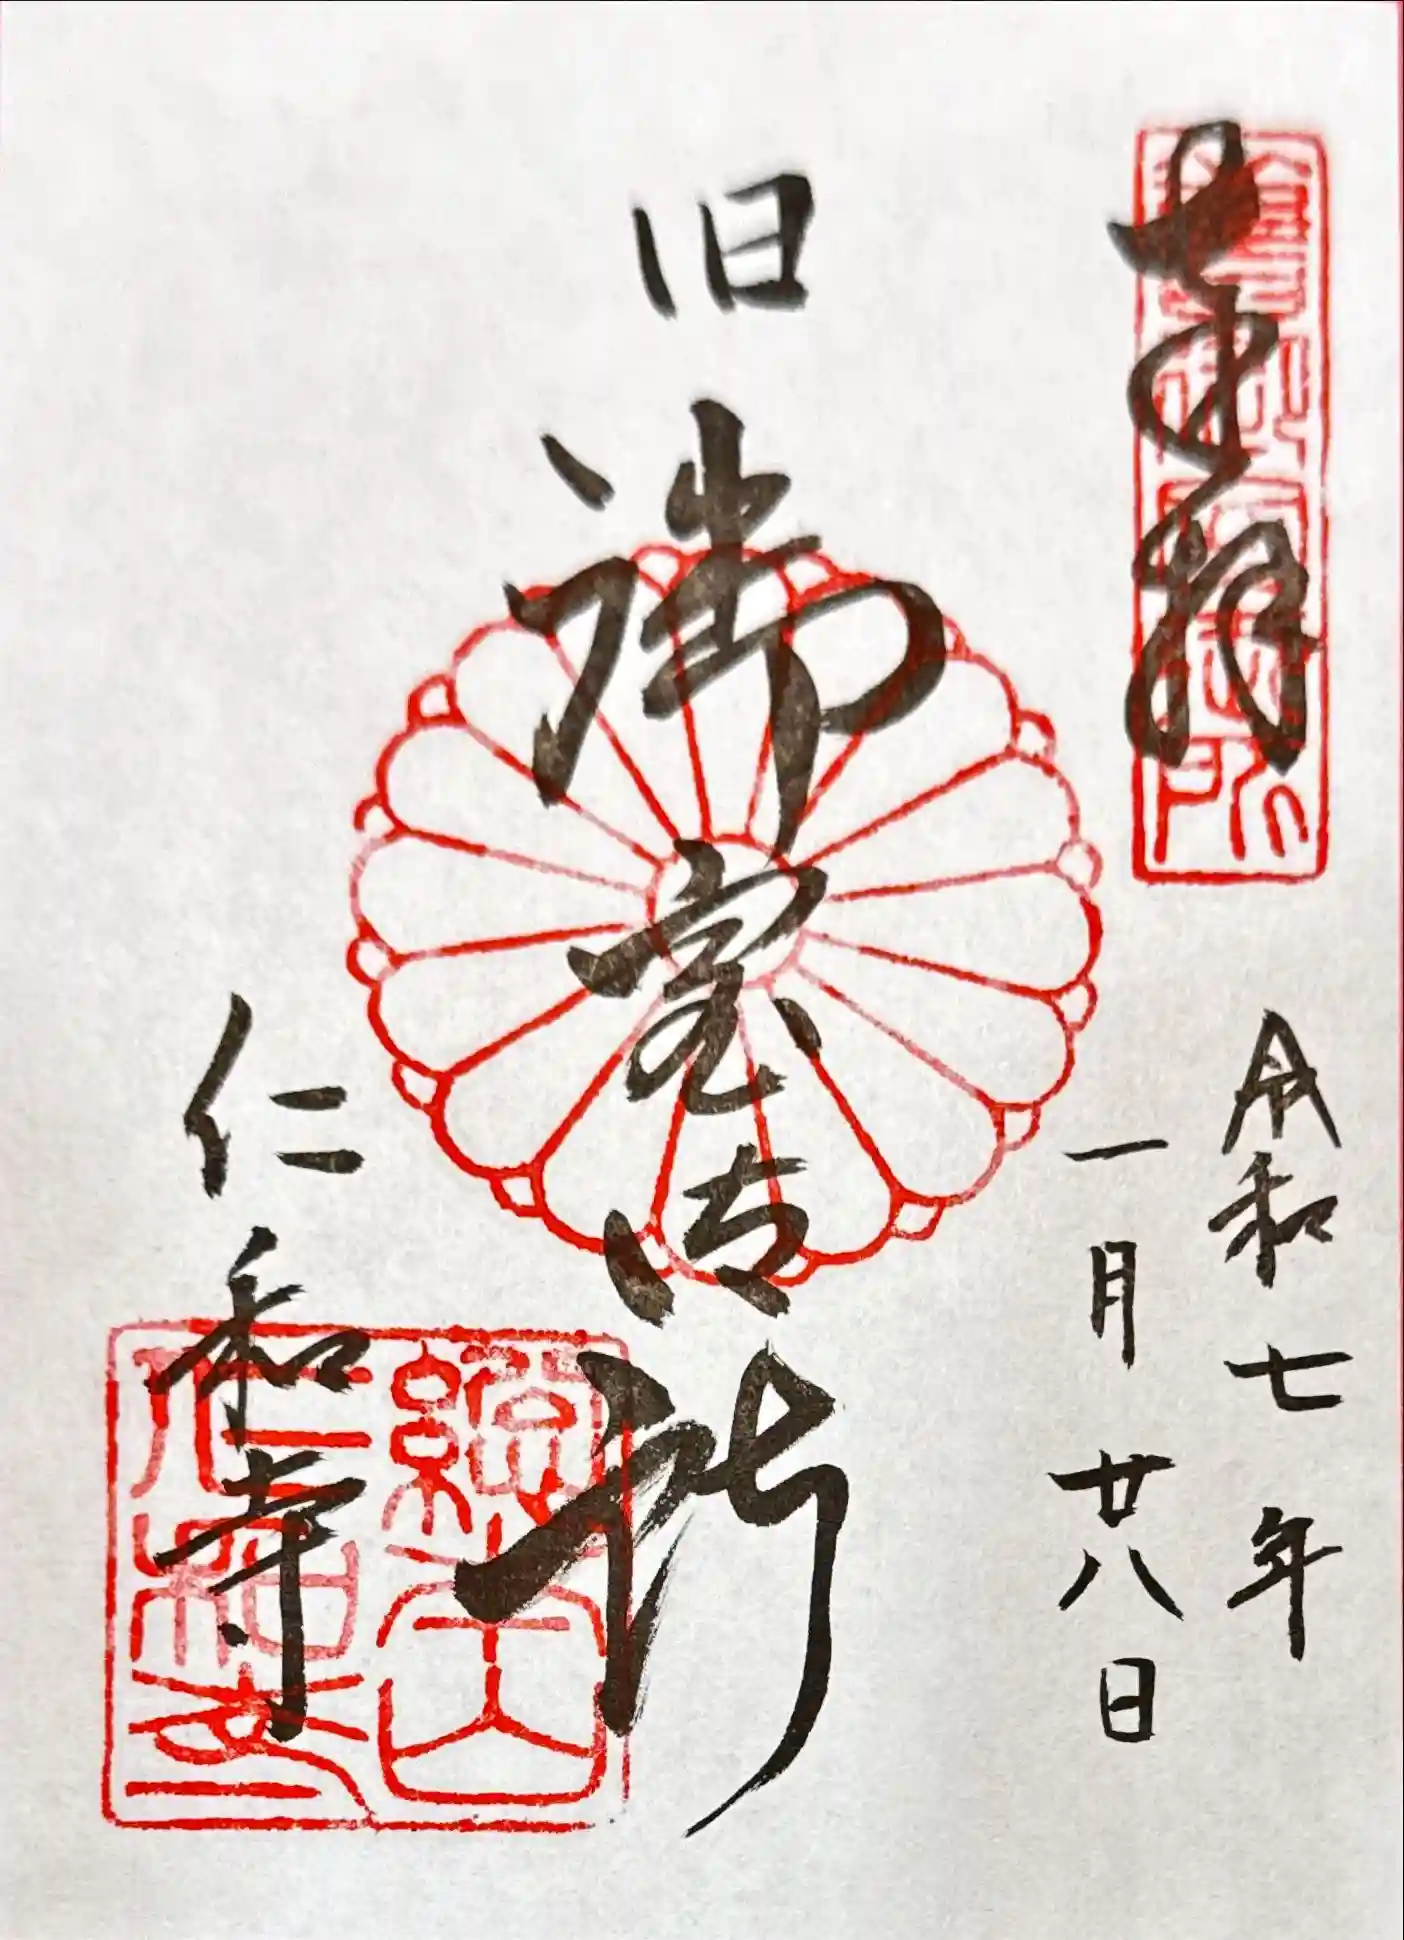 奉拝
令和七年
一月廿八日
旧御室御所
仁和寺
總本山
仁和寺